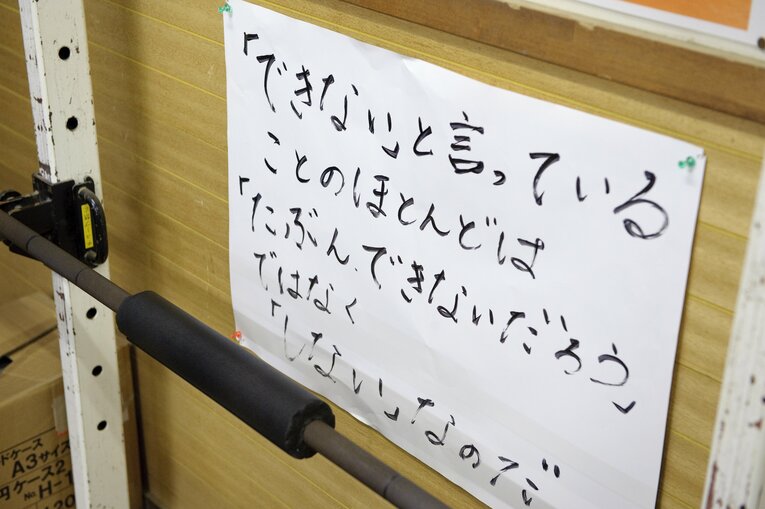 「できない」と言っている
ことのほとんどは
「たぶん、できないだろう」
ではなく
「しない」なのだ
ドケース
A3サイズ
円ケース2
No.H-1
120